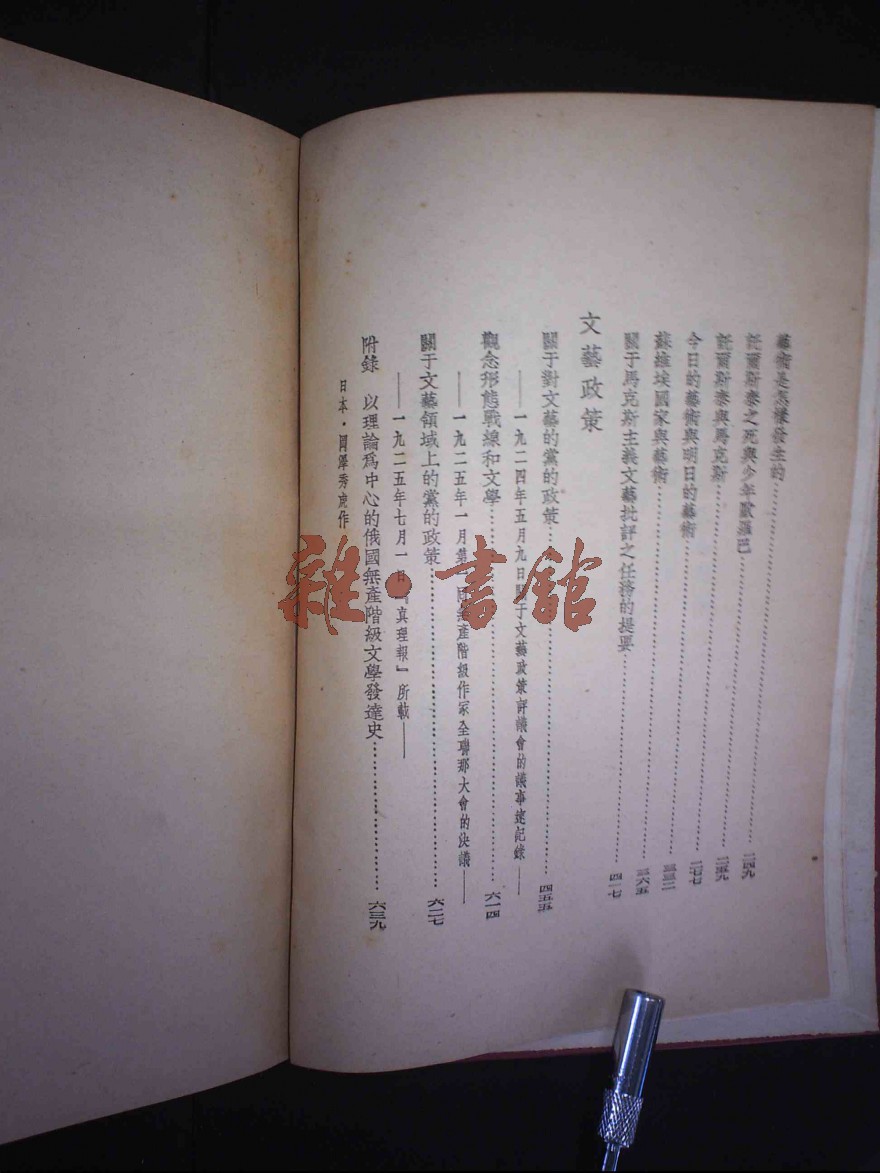 藝術是怎樣發生的
託爾斯泰之死與少年歐羅巴……二四九
託爾斯泰與馬克斯……二五九
今日的藝術與明日的藝術……二七七
蘇維埃國家與藝術……三三二
關于馬克斯主義文藝批評之任務的提要……四一七
文藝政策
關于對文藝的黨的政策……四五五
——一九二四年五月九日關于文藝政策評議會的議事速記錄——
觀念形態戰線和文學……六一四
——一九二五年一月第 無產階級作家全聯邦大會的決議——
關于文藝領域上的黨的政策……六二七
——一九二五年七月一日『真理報』所載——
附錄 以理論爲中心的俄國無產階級文學發達史……六三九
日本·岡澤秀虎作
雜·書館